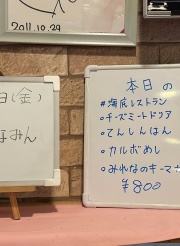 2011.10.29
日(金)
なみん
本日の
#海底レストラン
•チーズミートドリア
•てんしんはん
•カルボめし
•みれなのキーマカ
¥800